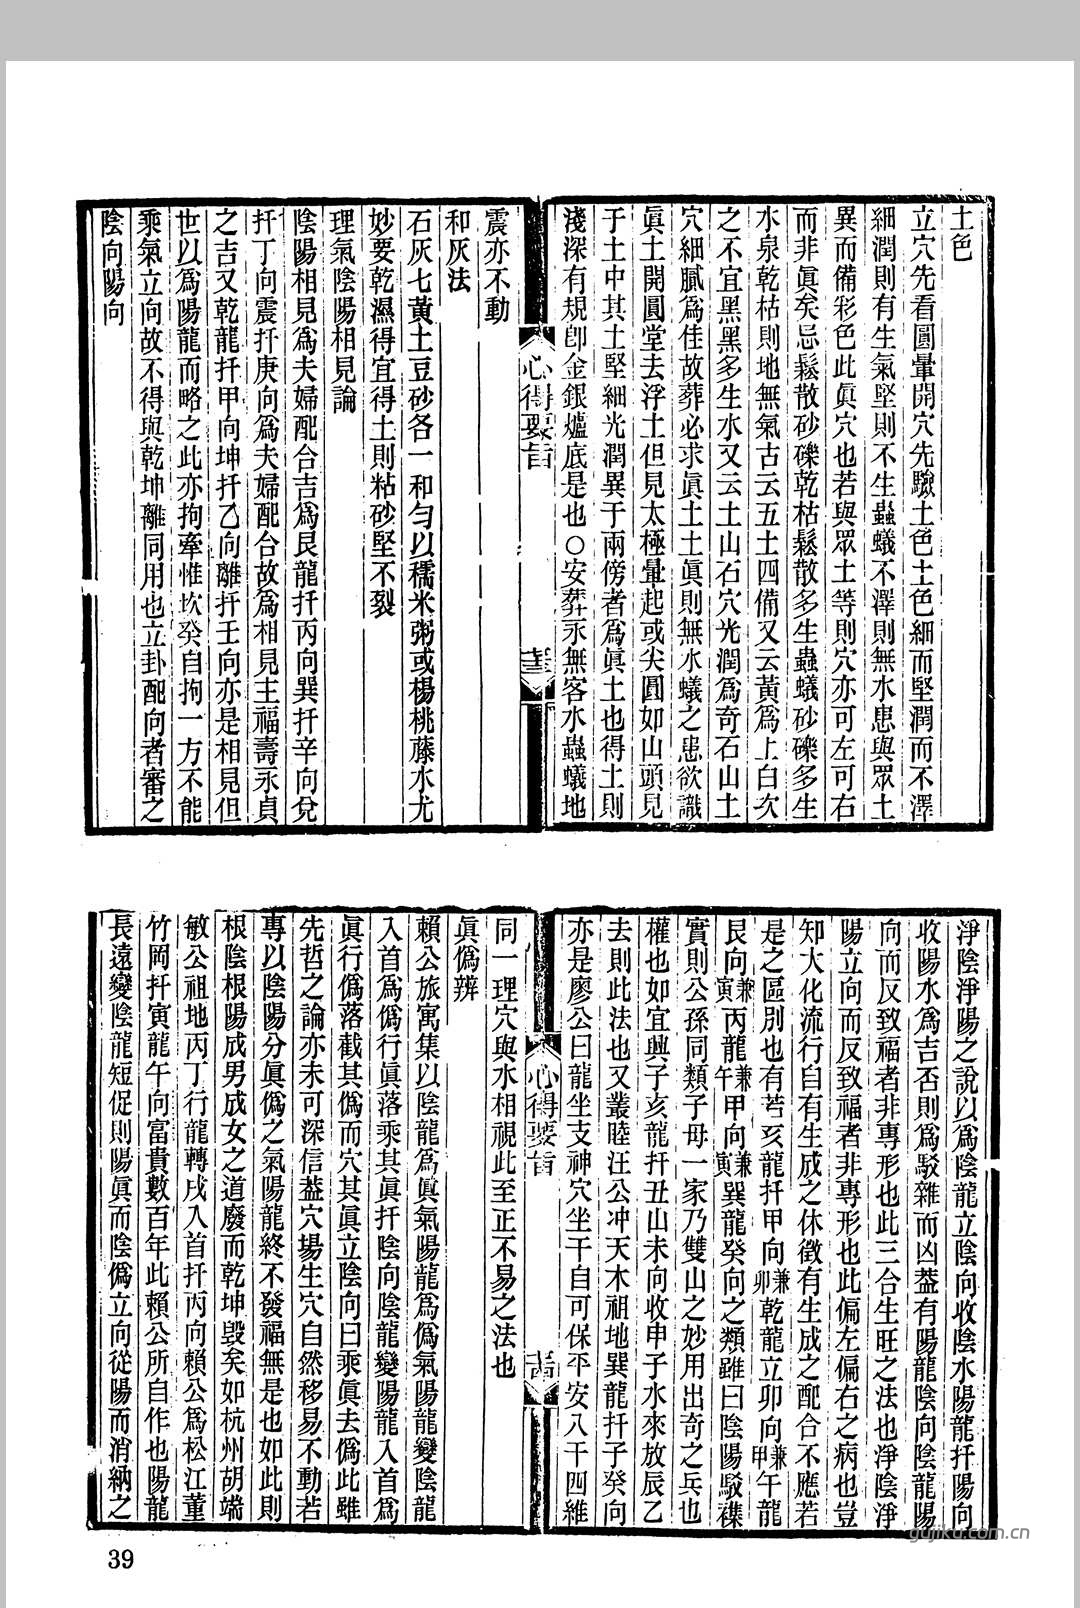 土色
立穴先看圓暈開穴先驗土色土色細而堅潤而不澤
細潤則有生氣堅則不生蟲蟻不澤則無水患與眾土
異而備彩色此眞穴也若與眾土等則穴亦可左可右
而非眞矣忌鬆散砂礫乾枯鬆散多生蟲蟻砂礫多生
水泉乾枯則地無氣古云五土四備又云黃爲上白次
之不宜黑黑多生水又云土山石穴光潤爲奇石山土
穴細膩爲佳故葬必求眞土土眞則無水蟻之患欲識
眞土開圓堂去浮土但見太極暈起或尖圓如山頭見
于土中其土堅細光潤異于兩傍者爲眞土也得土則
淺深有規卽金銀爐底是也○安葬永無客水蟲蟻地
心得要旨
震亦不動
和灰法
石灰七黃土豆砂各一和勻以穤米粥或楊桃藤水尤
妙要乾濕得宜得土則粘砂堅不裂
理氣陰陽相見論
陰陽相見爲夫婦配合吉爲艮龍扦丙向巽扦辛向兌
扦丁向震扦庚向爲夫婦配合故爲相見主福壽永貞
之吉又乾龍扦甲向坤扦乙向離扦壬向亦是相見但
世以爲陽龍而略之此亦拘牽惟坎癸自拘一方不能
乘氣立向故不得與乾坤離同用也立卦配向者審之
陰向陽向
淨陰淨陽之說以爲陰龍立陰向收陰水陽龍扦陽向
收陽水爲吉否則爲駁雜而凶葢有陽龍陰向陰龍陽
向而反致福者非專形也此三合生旺之法也淨陰淨
陽立向而反致福者非專形也此偏左偏右之病也豈
知大化流行自有生成之休徵有生成之配合不應若
是之區別也有若亥龍扦甲向兼卯乾龍立卯向兼甲午龍
艮向兼寅丙龍兼午甲向兼寅巽龍癸向之類雖曰陰陽駁襍
實則公孫同類子母一家乃雙山之妙用出奇之兵也
權也如宜興子亥龍扦丑山未向收申子水來放辰乙
去則此法也又叢睦汪公冲天木祖地巽龍扦子癸向
亦是廖公曰龍坐支神穴坐干自可保平安八干四維
心得要旨
同一理穴與水相視此至正不易之法也
眞僞辨
賴公旅寓集以陰龍爲眞氣陽龍爲僞氣陽龍變陰龍
入首爲僞行眞落乘其眞扦陰向陰龍變陽龍入首爲
眞行僞落截其僞而穴其眞立陰向曰乘眞去僞此雖
先哲之論亦未可深信葢穴場生穴自然移易不動若
專以陰陽分眞僞之氣陽龍終不發福無是也如此則
根陰根陽成男成女之道廢而乾坤毀矣如杭州胡端
敏公祖地丙丁行龍轉戌入首扦丙向賴公爲松江董
竹岡扦寅龍午向富貴數百年此賴公所自作也陽龍
長遠變陰龍短促則陽眞而陰僞立向從陽而消納之
39
gujiku.com.cn